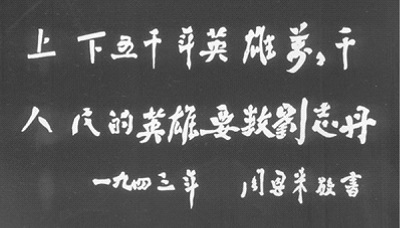 上下五千年英雄萬々千
人民的英雄要数劉志丹
一九四三年 周恩来敬書